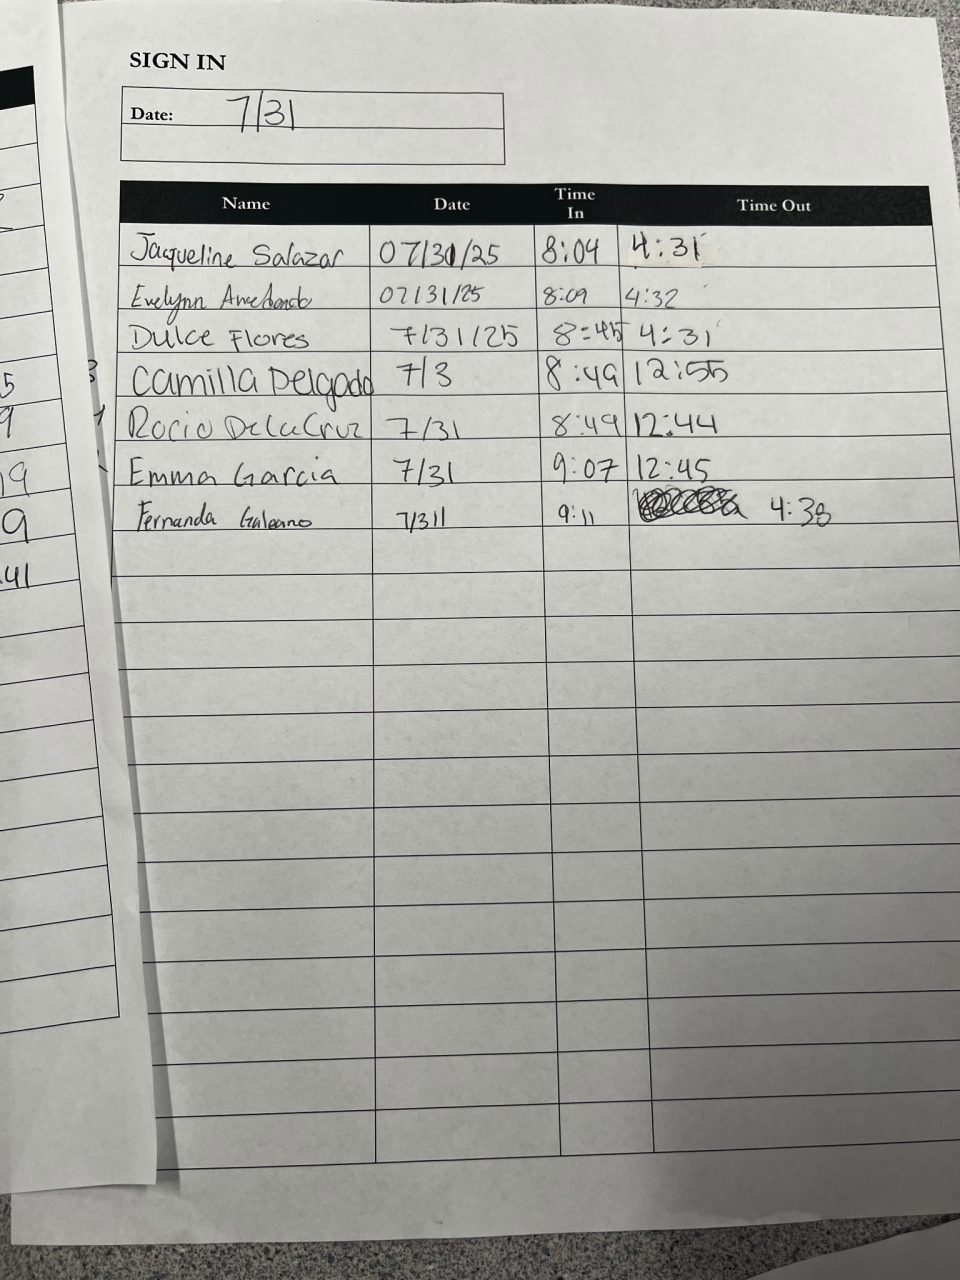 SIGN IN
Date: 7/31
Name Date Time In Time Out
Jaqueline Salazar 07/31/25 8:04 4:31
Evelynn 07/31/25 8:09 4:32
Dulce Flores 7/31/25 8:45 4:31
Camilla Delgado 7/3 8:49 12:55
Rocio DelaCruz 7/31 8:49 12:44
Emma Garcia 7/31 9:07 12:45
Fernanda Galeano 7/31 9:11 4:38
5
9
19
9
41